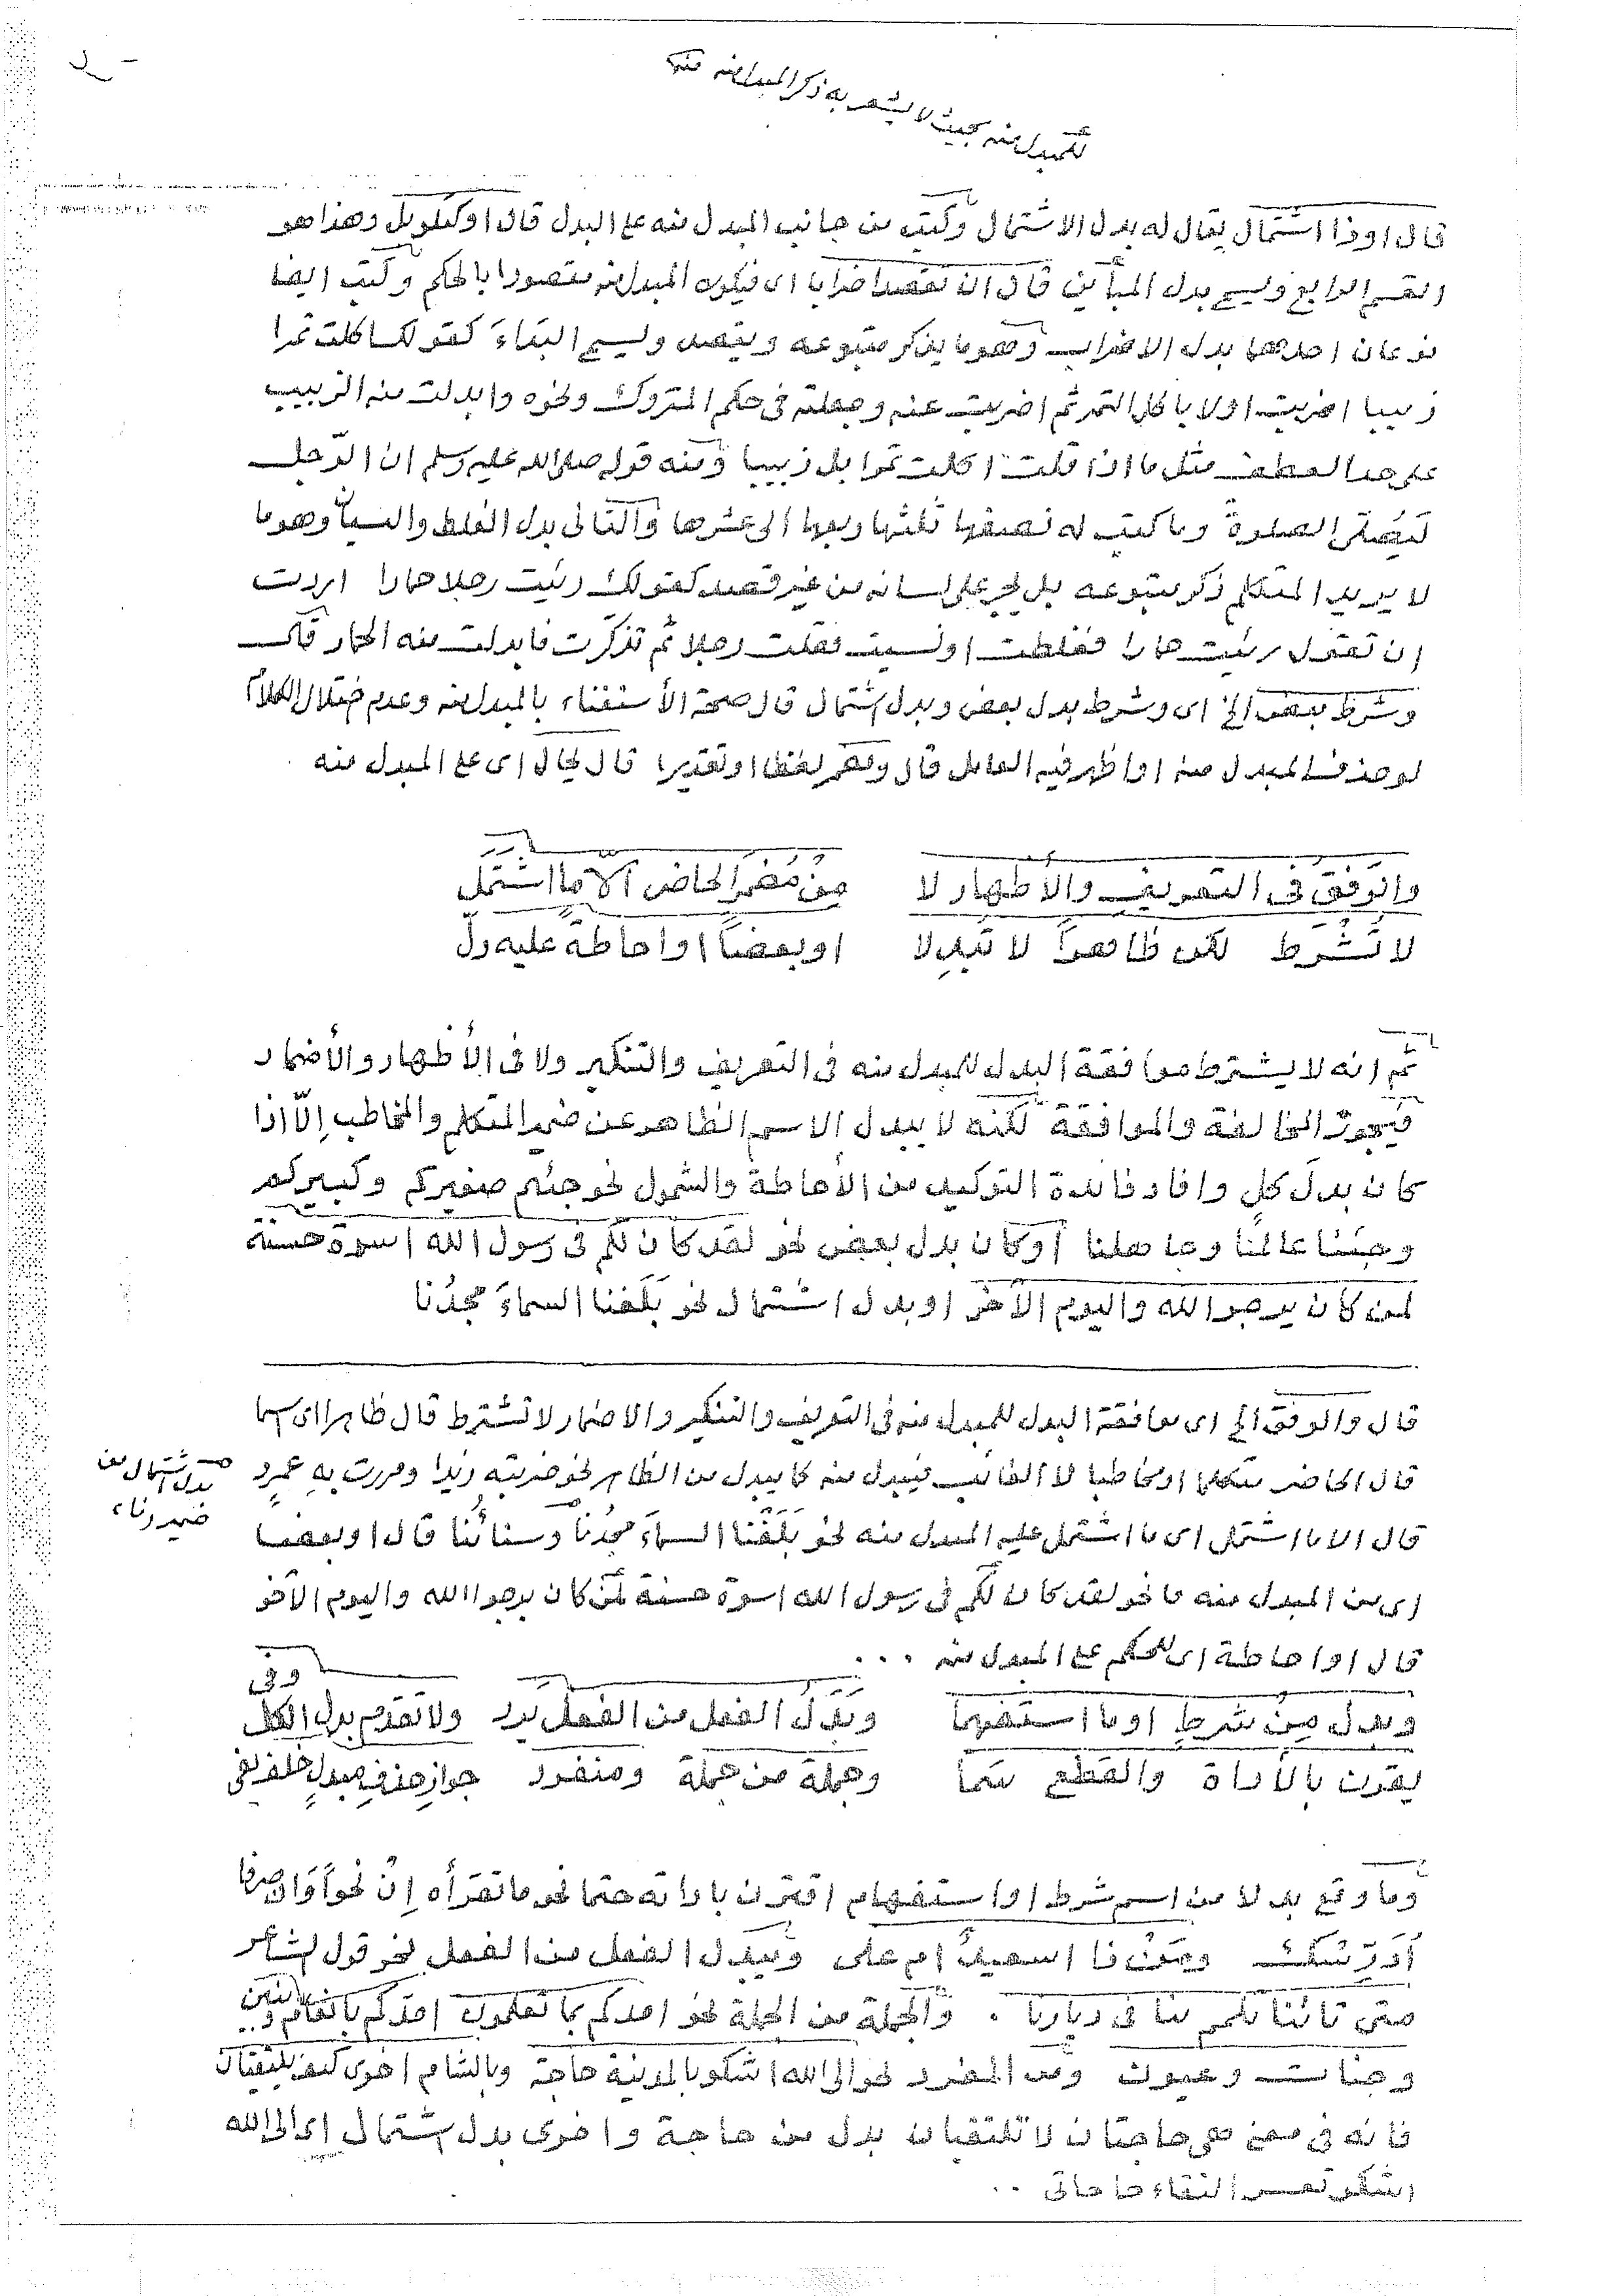 للمبدل منه بحيث لا يشعر به ذكر المبدل منه
قال او ذا اشتمال يقال له بدل الاشتمال وكتب من جانب المبدل منه على البدل قال او كبل وهذا هو
القسم الرابع ويسمى بدل المباين قال ان تقصد اضرابا اى فيكون المبدل منه مقصودا بالحكم وكتب ايضا
نوعان احدهما بدل الاضراب وهو ما يذكر متبوعه ويقصد ويسمى البداء كقولك اكلت تمرا
زبيبا اخبرت اولا باكل التمر ثم اضربت عنه وجعلته فى حكم المتروك ونحوه وابدلت منه الزبيب
على حد العطف مثل ما اذا قلت اكلت تمرا بل زبيبا ومنه قوله صلى الله عليه وسلم ان الرّجل
ليُصلّى الصلوة وما كتب له نصفها ثلثها ربعها الى عشرها والثانى بدل الغلط والنسيان وهو ما
لا يريد المتكلم ذكر متبوعه بل يجرى على لسانه من غير قصد كقولك رئيت رجلا حمارا اردت
ان تقول رئيت حمارا فغلطت او نسيت فقلت رجلا ثم تذكّرت فابدلت منه الحمار قال
وشرط بعض الخ اى وشرط بدل بعض وبدل اشتمال قال صحة الأستغناء بالمبدل منه وعدم اختلال الكلام
لو حذف المبدل منه او اظهر فيه العامل قال ومضمر لفظا او تقديرا قال اى على المبدل منه
والوَفقُ فى التعريف والأظهار لا مِنْ مُضمَر الحاضر الّا ما اشتمل
لا تُشترط لكن ظاهراً لا تُبدِلا او بعضاً او احاطةً عليه دلّ
ثم انه لا يشترط موافقة البدل للمبدل منه فى التعريف والتنكير ولا فى الأظهار والأضمار
فيجوز المخالفة والموافقة لكنه لا يبدل الاسم الظاهر عن ضمير المتكلم والمخاطب اِلّا اذا
كان بدلَ كلٍ وافاد فائدة التوكيد من الأحاطة والشمول نحو جئتم صغيركم وكبيركم
وجئنا عالمنا وجاهلنا أو كان بدل بعض نحو لقد كان لكم فى رسول الله اسوة حسنة
لمن كان يرجو الله واليوم الآخر او بدل اشتمال نحو بَلَغنا السماءَ مجدُنا
قال والوفق الخ اى موافقة البدل للمبدل منه فى التعريف والتنكير والاضمار لا تشترط قال ظاهرا اى اسما
قال الحاضر متكلما او مخاطبا لا الغائب فيبدل منه كما يبدل من الظاهر نحو ضربته زيدا ومررت بهِ عمرٍو
قال الا ما اشتمل اى ما اشتمل عليه المبدل منه نحو بَلَغْنا السماءَ مجدُنا وسنائُنا قال او بعضا
بدل اشتمال من
ضمير نا
اى من المبدل منه نحو لقد كان لكم فى رسول الله اسوة حسنة لمن كان يرجوا الله واليوم الآخر
قال او احاطة اى للحكم على المبدل منه ...
وبدل مِنْ شرطٍ او ما استفهما وبَدَلُ الفعل من الفعل يرد ولا تقدّم بدل الكل وفى
يقرن بالأداة والقطع سَما وجملة من جملة ومنفرد جوازِ حذفِ مبدلٍ خلف يفى
وما وقع بدلا من اسم شرط او استفهام اقترن باداته حتما نحو ما تقرأه اِنْ نحواً وَان صرفا
اُدَرِّسك ومَنْ ذا اسعيدٌ ام على ويبدل الفعل من الفعل نحو قول الشاعر
متى تائتنا تلمم بنا فى ديارنا . والجملة من الجملة نحو امدكم بما تعلمون امدّكم بانعام وبنين
وجنات وعيون ومن المفرد نحو الى الله اشكو بالمدينة حاجة وبالشام اخرى كيف يلتقيان
فانه فى معنى حاجتان لا تلتقيان بدل من حاجة واخرى بدل اشتمال اى الى الله
اشكو تعسر التقاء حاجاتى ..